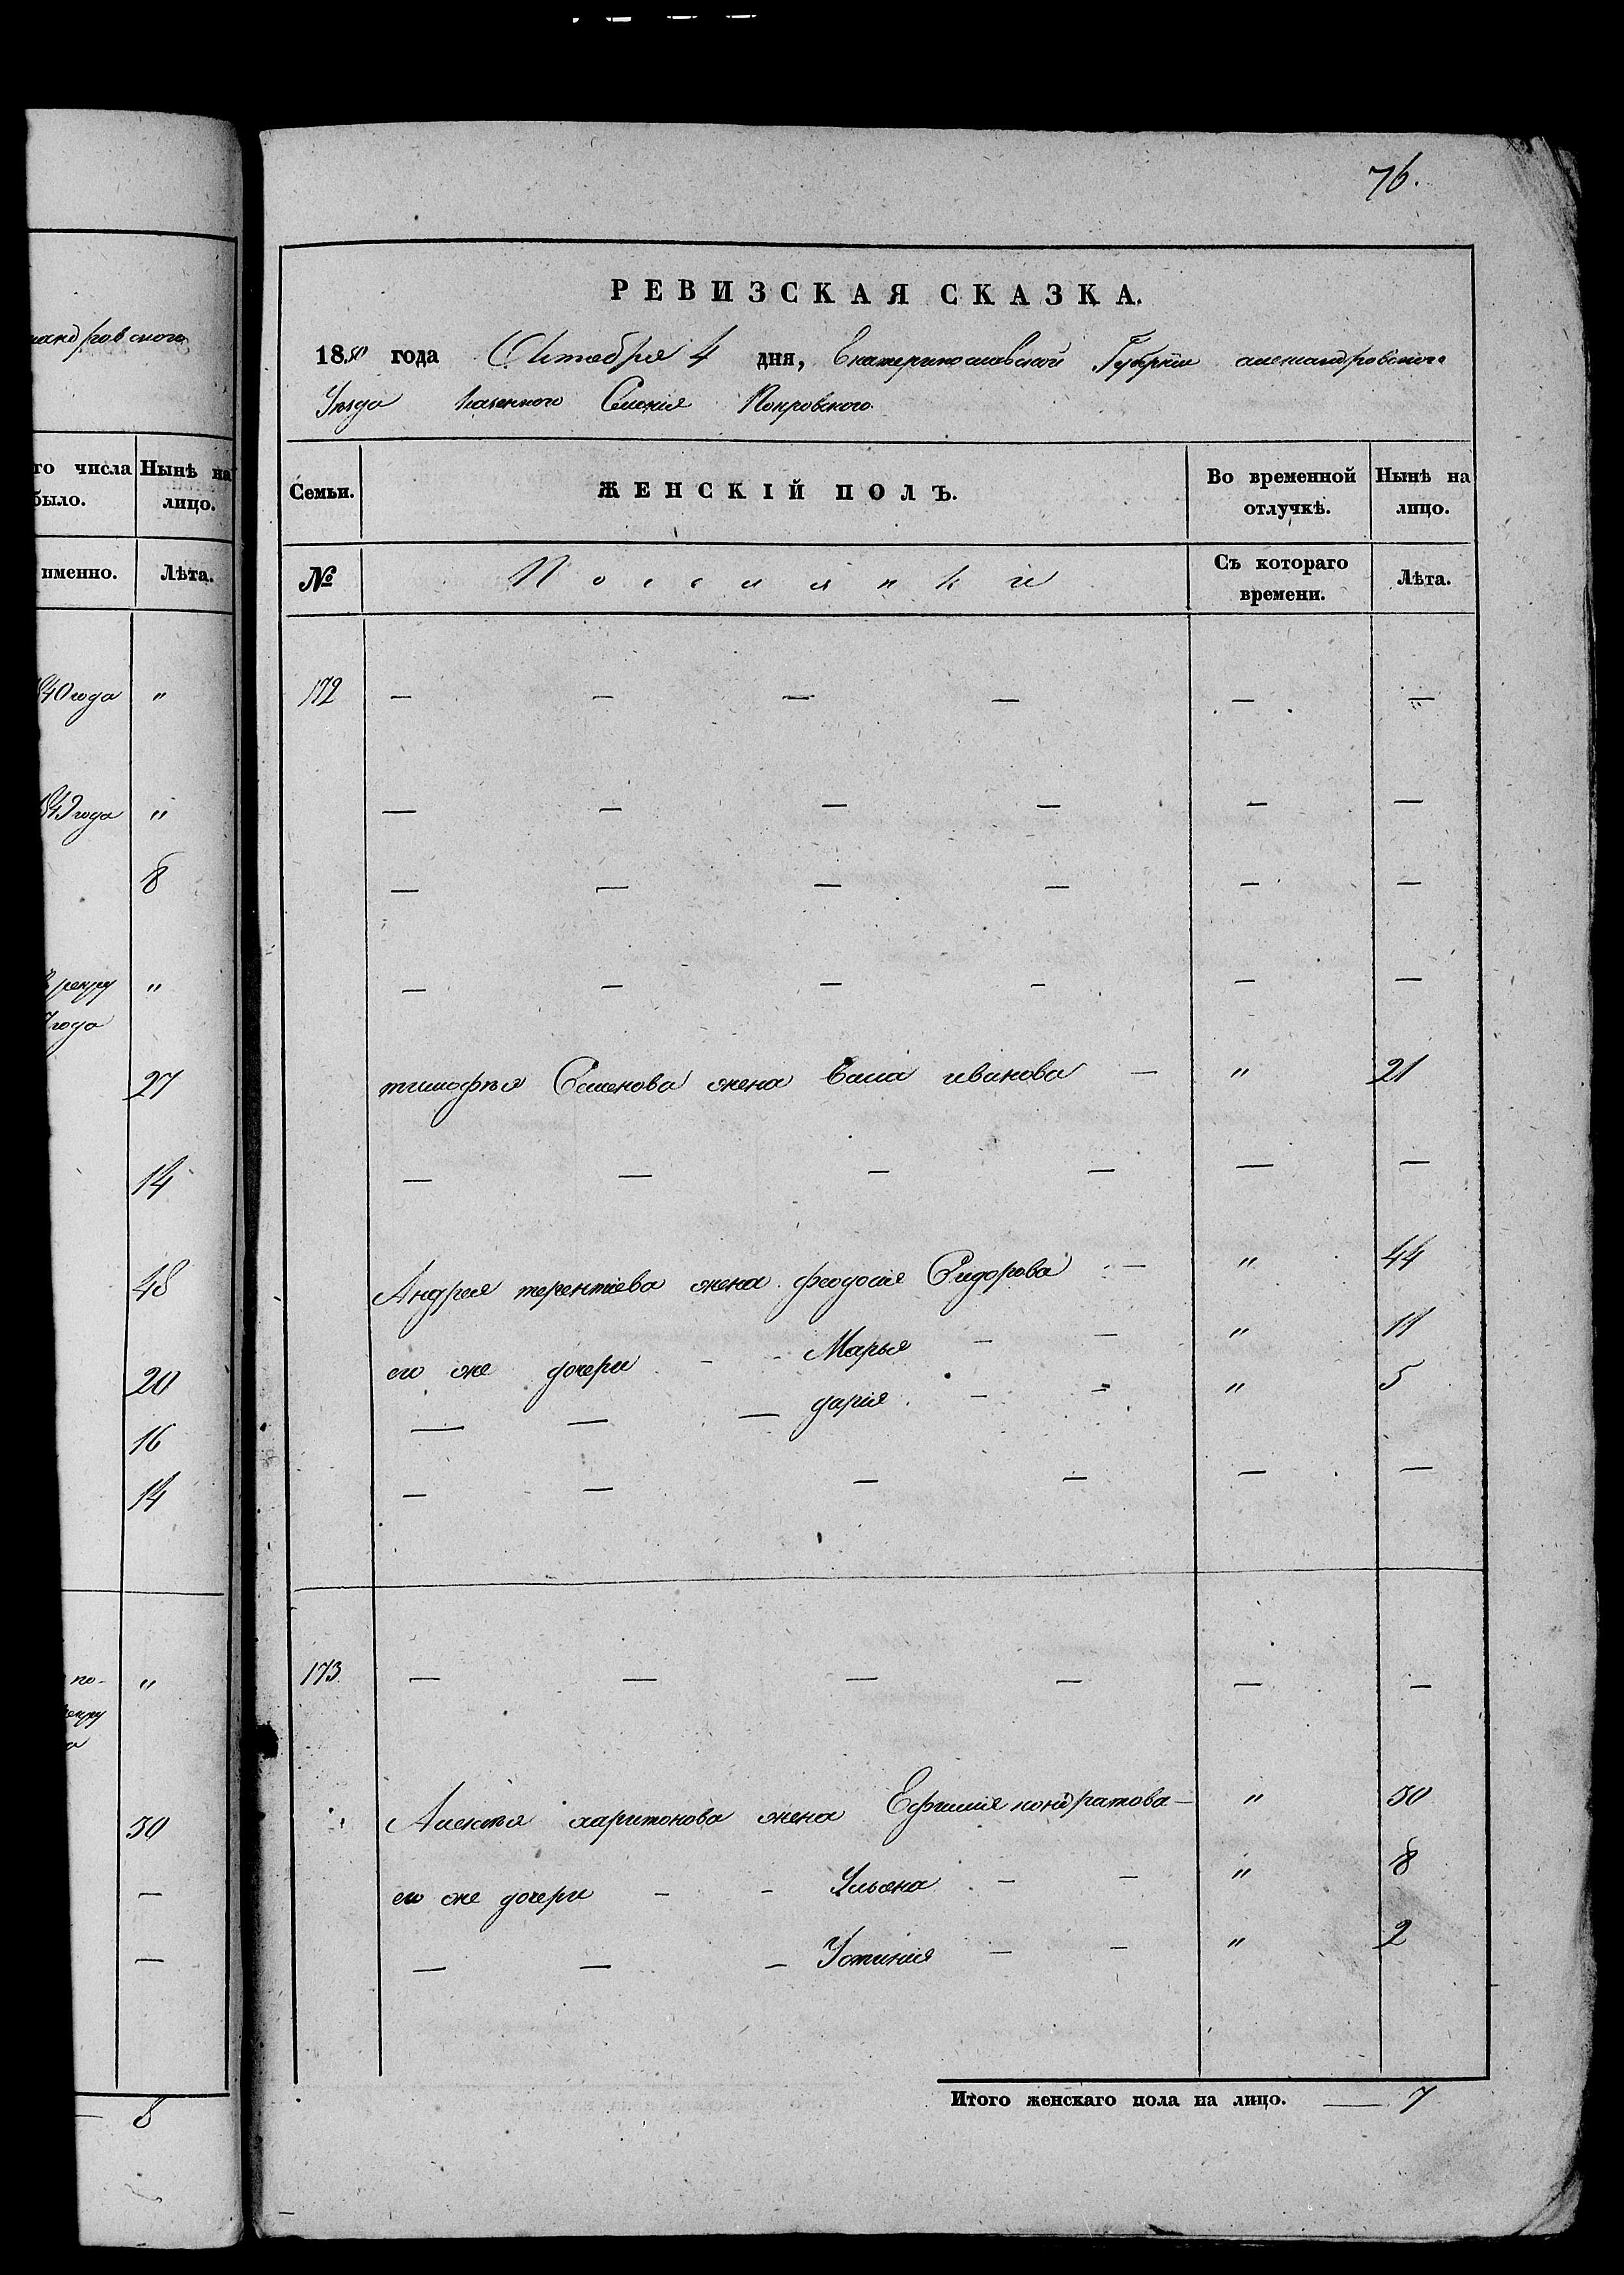 76.
РЕВИЗСКАЯ СКАЗКА.
1850 года Октября 4 дня, Екатеринославской Губернии александровского
Уезда Казенного Селения Покровского.
то числа
было.
Нынѣ на
лицо.
Семьи.
ЖЕНСКІЙ ПОЛЪ.
Во временной
отлучкѣ.
Нынѣ на
лицо.
именно.
Лѣта.
№
Съ котораго
времени.
Лѣта.
года "
172 — — — — — —
года "
— — — — — —
8
— — — — — —
рекру "
года
— — — — — —
27
тимофѣя Семенова жена иванова — " 21
14
— — — — — —
48
Андрея терентіева жена феодосія Сидорова — " 44
его же дочери - - Марья - — " 11
20
— — — дарія - - " 5
16
14
— — — — — —
173 — — — — — —
по- "
рекру
30
Алексѣя харитонова жена Ефимія кондратова — " 30
его же дочери - - Ульяна - - " 8
—
— — — Устинія - - " 2
—
Итого женскаго пола на лицо. — 7
— 8